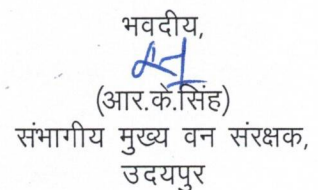 भवदीय,
(आर.के.सिंह)
संभागीय मुख्य वन संरक्षक,
उदयपुर